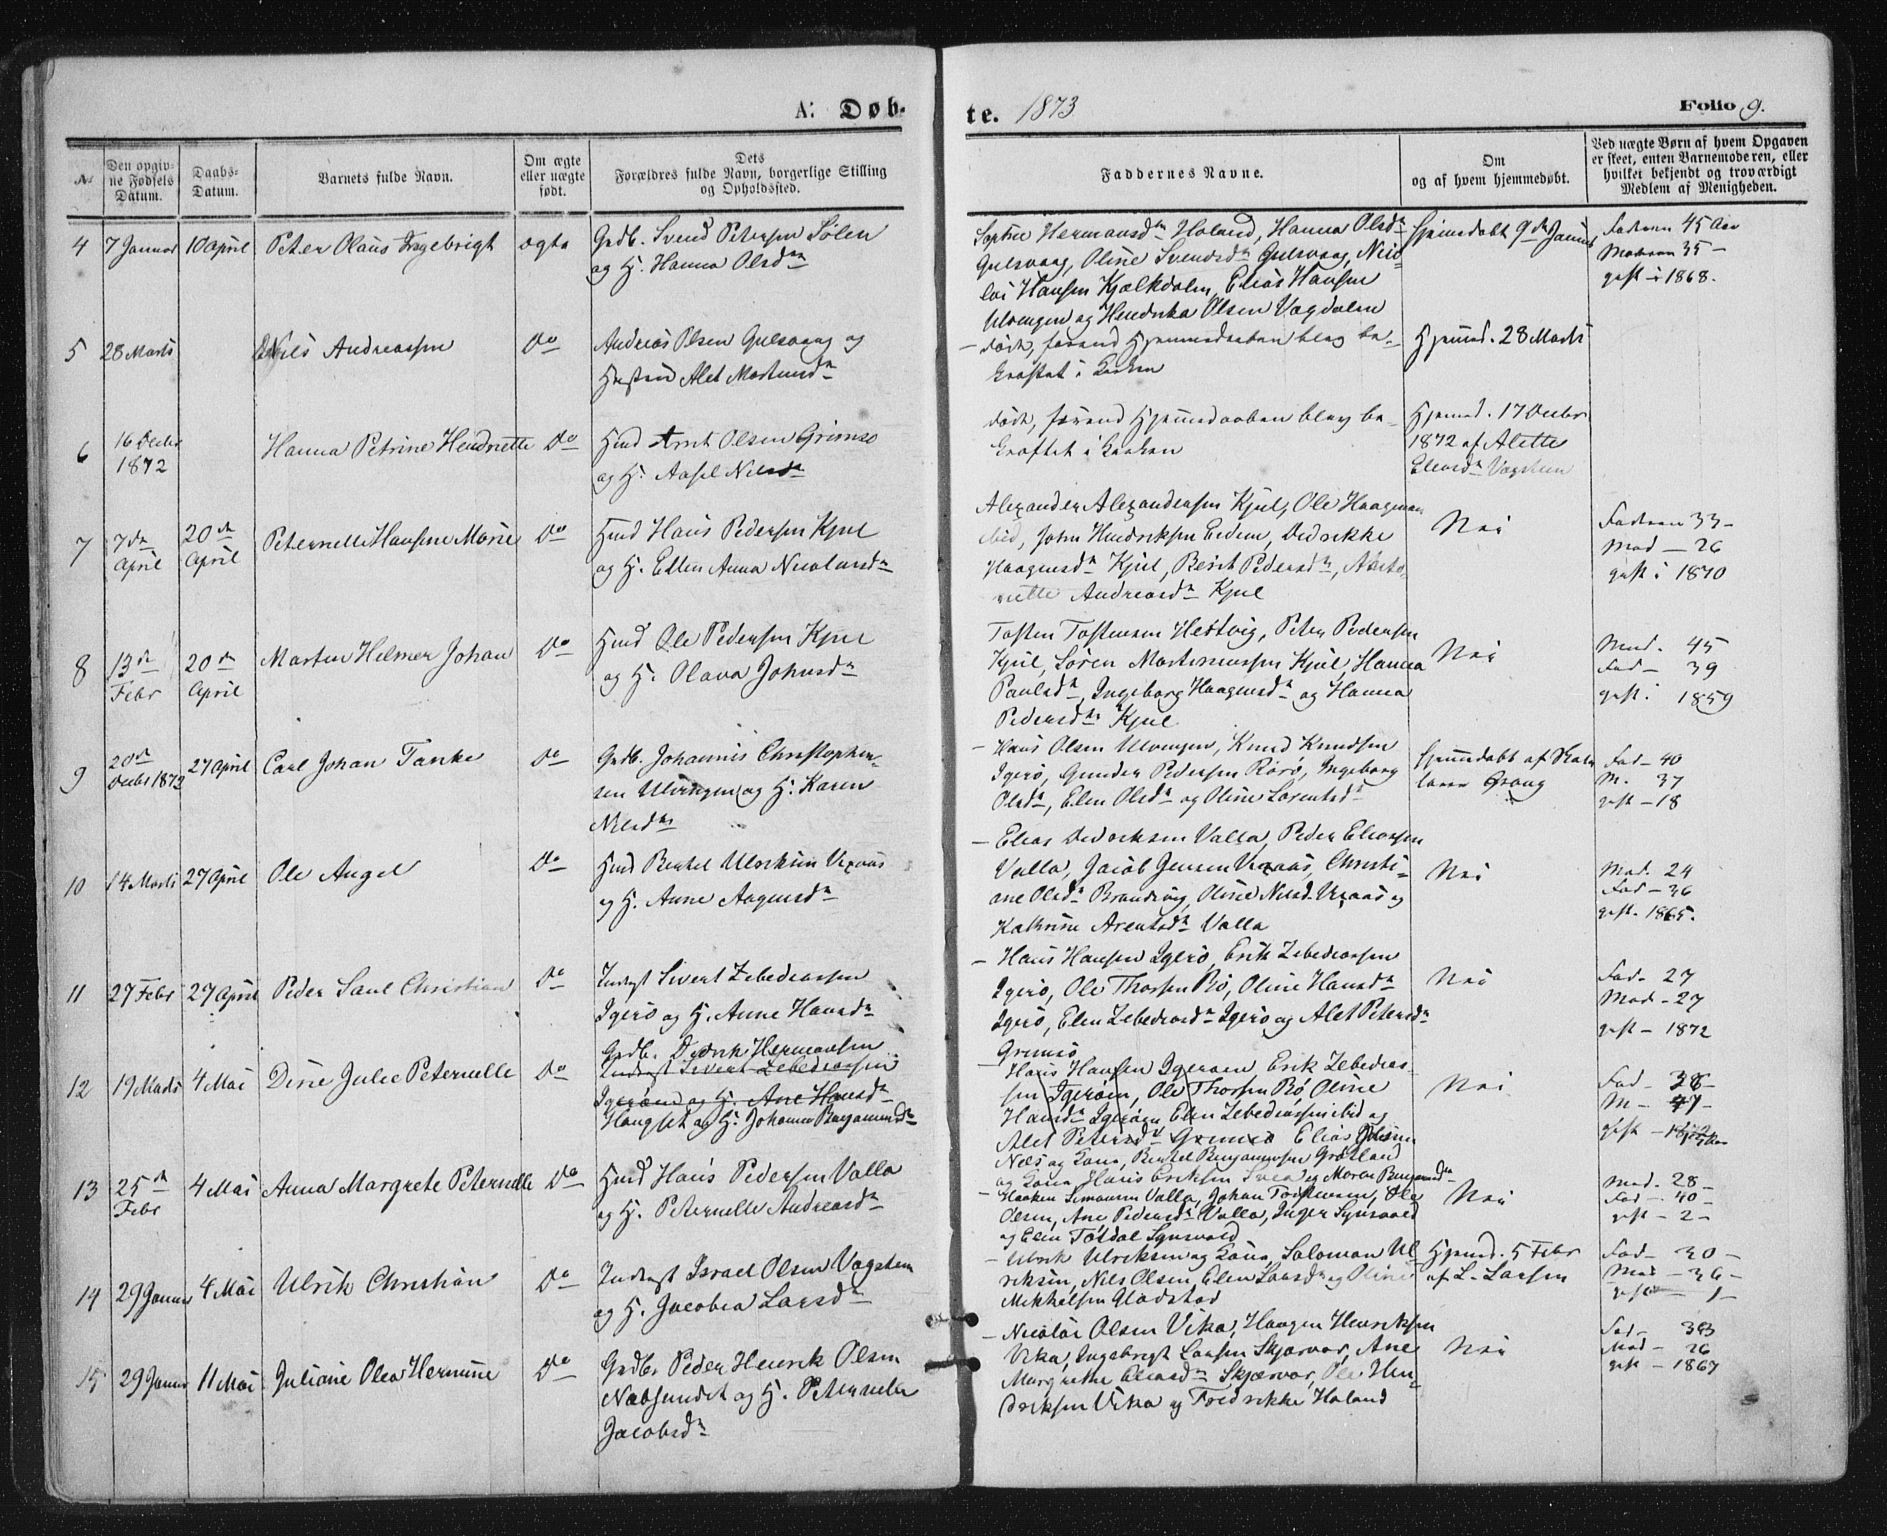 A: Døb-
te. 1873
Folio 9.
No
Den opgiv-
ne Fødsels
Datum.
Daabs-
Datum.
Barnets fulde Navn.
Om ægte
eller uægte
født.
Dets
Forældres fulde Navn, borgerlige Stilling
og Opholdssted.
Faddernes Navne.
Om
og af hvem hjemmedøbt.
Ved uægte Børn af hvem Opgaven
er skeet, enten Barnemoderen, eller
hvilket bekjendt og troværdigt
Medlem af Menigheden.
4 7 Januar 10 April Peter Olaus Ingebrigt ægte
Grdb. Svend Petersen Sølen
og H. Hanna Olsdtr
Sophie Hermansdtr Holand, Hanna Olsdtr
Gulsvaag, Oline Svendsdtr Gulsvaag, Nico-
lai Hansen Kjælkdalen, Elias Hansen
Ulvingen og Hendrika Olsen Vagdalen
Hjemdøbt 9de Januar
Faderen 45 Aar
Moderen 35 -
gift i 1868.
5 28 Marts Nils Andreassen Do
Andreas Olsen Gulsvaag og
Hustru Alet Mortensdtr
- død, forend Hjemmedaaben blev be-
kræftet i Kirken
Hjemd. 28 Marts
6 16 Decbr
1872
Hanna Petrine Hendriette Do
Hmd Arnt Olsen Grimsø
og H. Aasel Nilsdtr
død, forend Hjemmedaaben blev be-
kræftet i Kirken
Hjemd. 17 Decbr
1872 af Alette
Eliasdtr Vagsteen
7 7de
April
20de
April
Peternelle Hansine Marie Do
Hmd Hans Pedersen Kjul
og H. Ellen Anna Nicolaisdtr
Alexander Alexandersen Kjul, Ole Haagensen
ibid, John Hendriksen Eidem, Dedrikke
Haagensdtr Kjul, Berit Pedersdtr,
Andreasdtr Kjul
Nei
Faderen 33 -
Mod - 26
gift i 1870
8 13de
Febr
20de
April
Morten Helmer Johan Do
Hmd Ole Pedersen Kjul
og H. Olava Johnsdtr
Tosten Tostensen Hestvig, Peter Pedersen
Kjul, Søren Mortensen Kjul, Hanna
Paulsdtr, Ingeborg Haagensdtr og Hanna
Pedersdtr Kjul
Nei
Mod. 45
Fad - 39
gift i 1859
9 20de
Decbr 1872
27 April Carl Johan Tanke Do
Grdb. Johannis Christopher-
sen Ulvingen og H. Karen
Nilsdtr
- Hans Olsen Ulvingen, Knud Knudsen
Igerø, Gunder Pedersen Rørø, Ingeborg
Olsdtr, Elen Olsdtr og Oline Lorentsdtr
Hjemdøbt af
Fad - 40
M. 37
gift - 18
10 14 Marts 27 April Ole Angel Do
Hmd Bertel Ulriksen Vixaas
og H. Anne Aagensdtr
- Elias Dedriksen Valla, Peder Eliassen
Valla, Jacob Jensen Vixaas, Christi-
ane Olsdtr Brandvig, Oline Nilsd. Vixaas og
Kathrine Arentsdtr Valla
Nei
Mod. 24
Fad - 36
gift - 1865.
11 27 Febr 27 April Peder Saul Christian Do
Inderst Sivert Zebediassen
Igerø og H. Anne Hansdtr
- Hans Hansen Igerø, Erik Zebediassen
Igerø, Ole Thorsen Rø, Oline Hansdtr
Igerø, Elen Zebediasdtr Igerø og Alet Petersdtr
Grimsø
Nei
Fad - 27
Mod - 27
gift - 1872
12 19 Marts 4 Mai Dine Julie Peternelle Do
Grdb. Dedrik Hermansen
Inderst Sivert Zebediassen
Igerøen og H. Ane Hansdtr
Haugset og H. Johanna Benjaminsdtr
Hans Hansen Igerøen, Erik Zebedias-
sen Igerøen, Ole Thorsen Rø, Oline
Hansdtr Igerøen, Elen Zebediassen ibid og
Alet Petersdtr Grimsø Elias Olsen
Næs og Kona, Bertel Benjaminsen Grøtland
og Kona Hans Eriksen Svea og Maren Benjaminsdtr
Nei
Fad - 38 -
M - 47 -
gift -
13 25de
Febr
4 Mai Anna Margrete Peternelle Do
Hmd Hans Pedersen Valla
og H. Peternelle Andreasdtr
- Haaken Simonsen Valla, Johan Tostensen, Ole
Olsen, Ane Pedersdtr Valla, Inger Synsvold
og Elen Tøtdal Synsvold
Nei
Mod. 28 -
Fad - 40 -
gift - 2 -
14 29 Januar 4 Mai Ulrik Christian Do
Inderst Israel Olsen Vagsteen
og H. Jacobia Larsdtr
- Ulrik Ulriksen og Kona, Saloman Ul-
riksen, Nils Olsen, Elen Larsdtr og Oline
Mikkelsen Gladstad
Hjemd. 5 Febr
af L. Larsen
Fad - 30 -
Mod - 36 -
gift - 1 -
15 29 Januar 11 Mai Juliane Olea Hermine Do
Grdb. Peder Henrik Olsen
Næbsundet og H. Peternelle
Jacobsdtr
- Nicolai Olsen Vika, Haagen Henriksen
Vika, Ingebrigt Larsen Skjærvær, Ane
Margrethe Eliasdtr Skjærvær, Ole Hen-
driksen Vika og Fredrikke Holand
Nei
Fad - 33
Mod - 26
gift - 1867